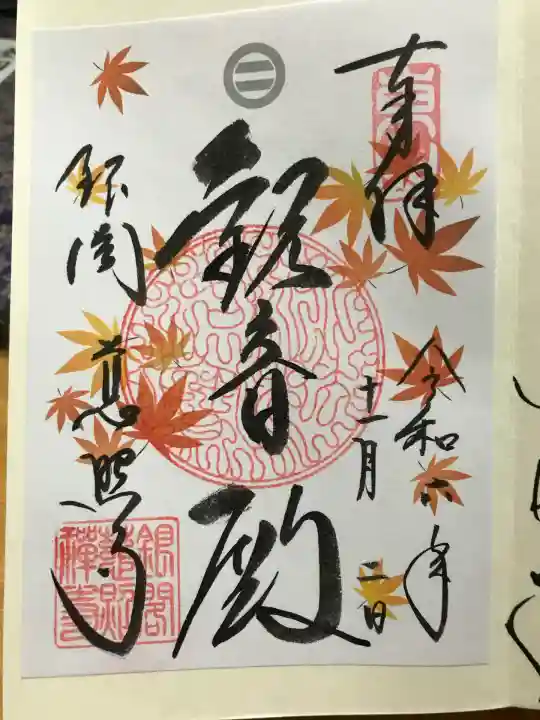 奉拝
令和六年
十一月
二日
観音殿
銀閣
慈照寺
銀閣
慈照
禅寺